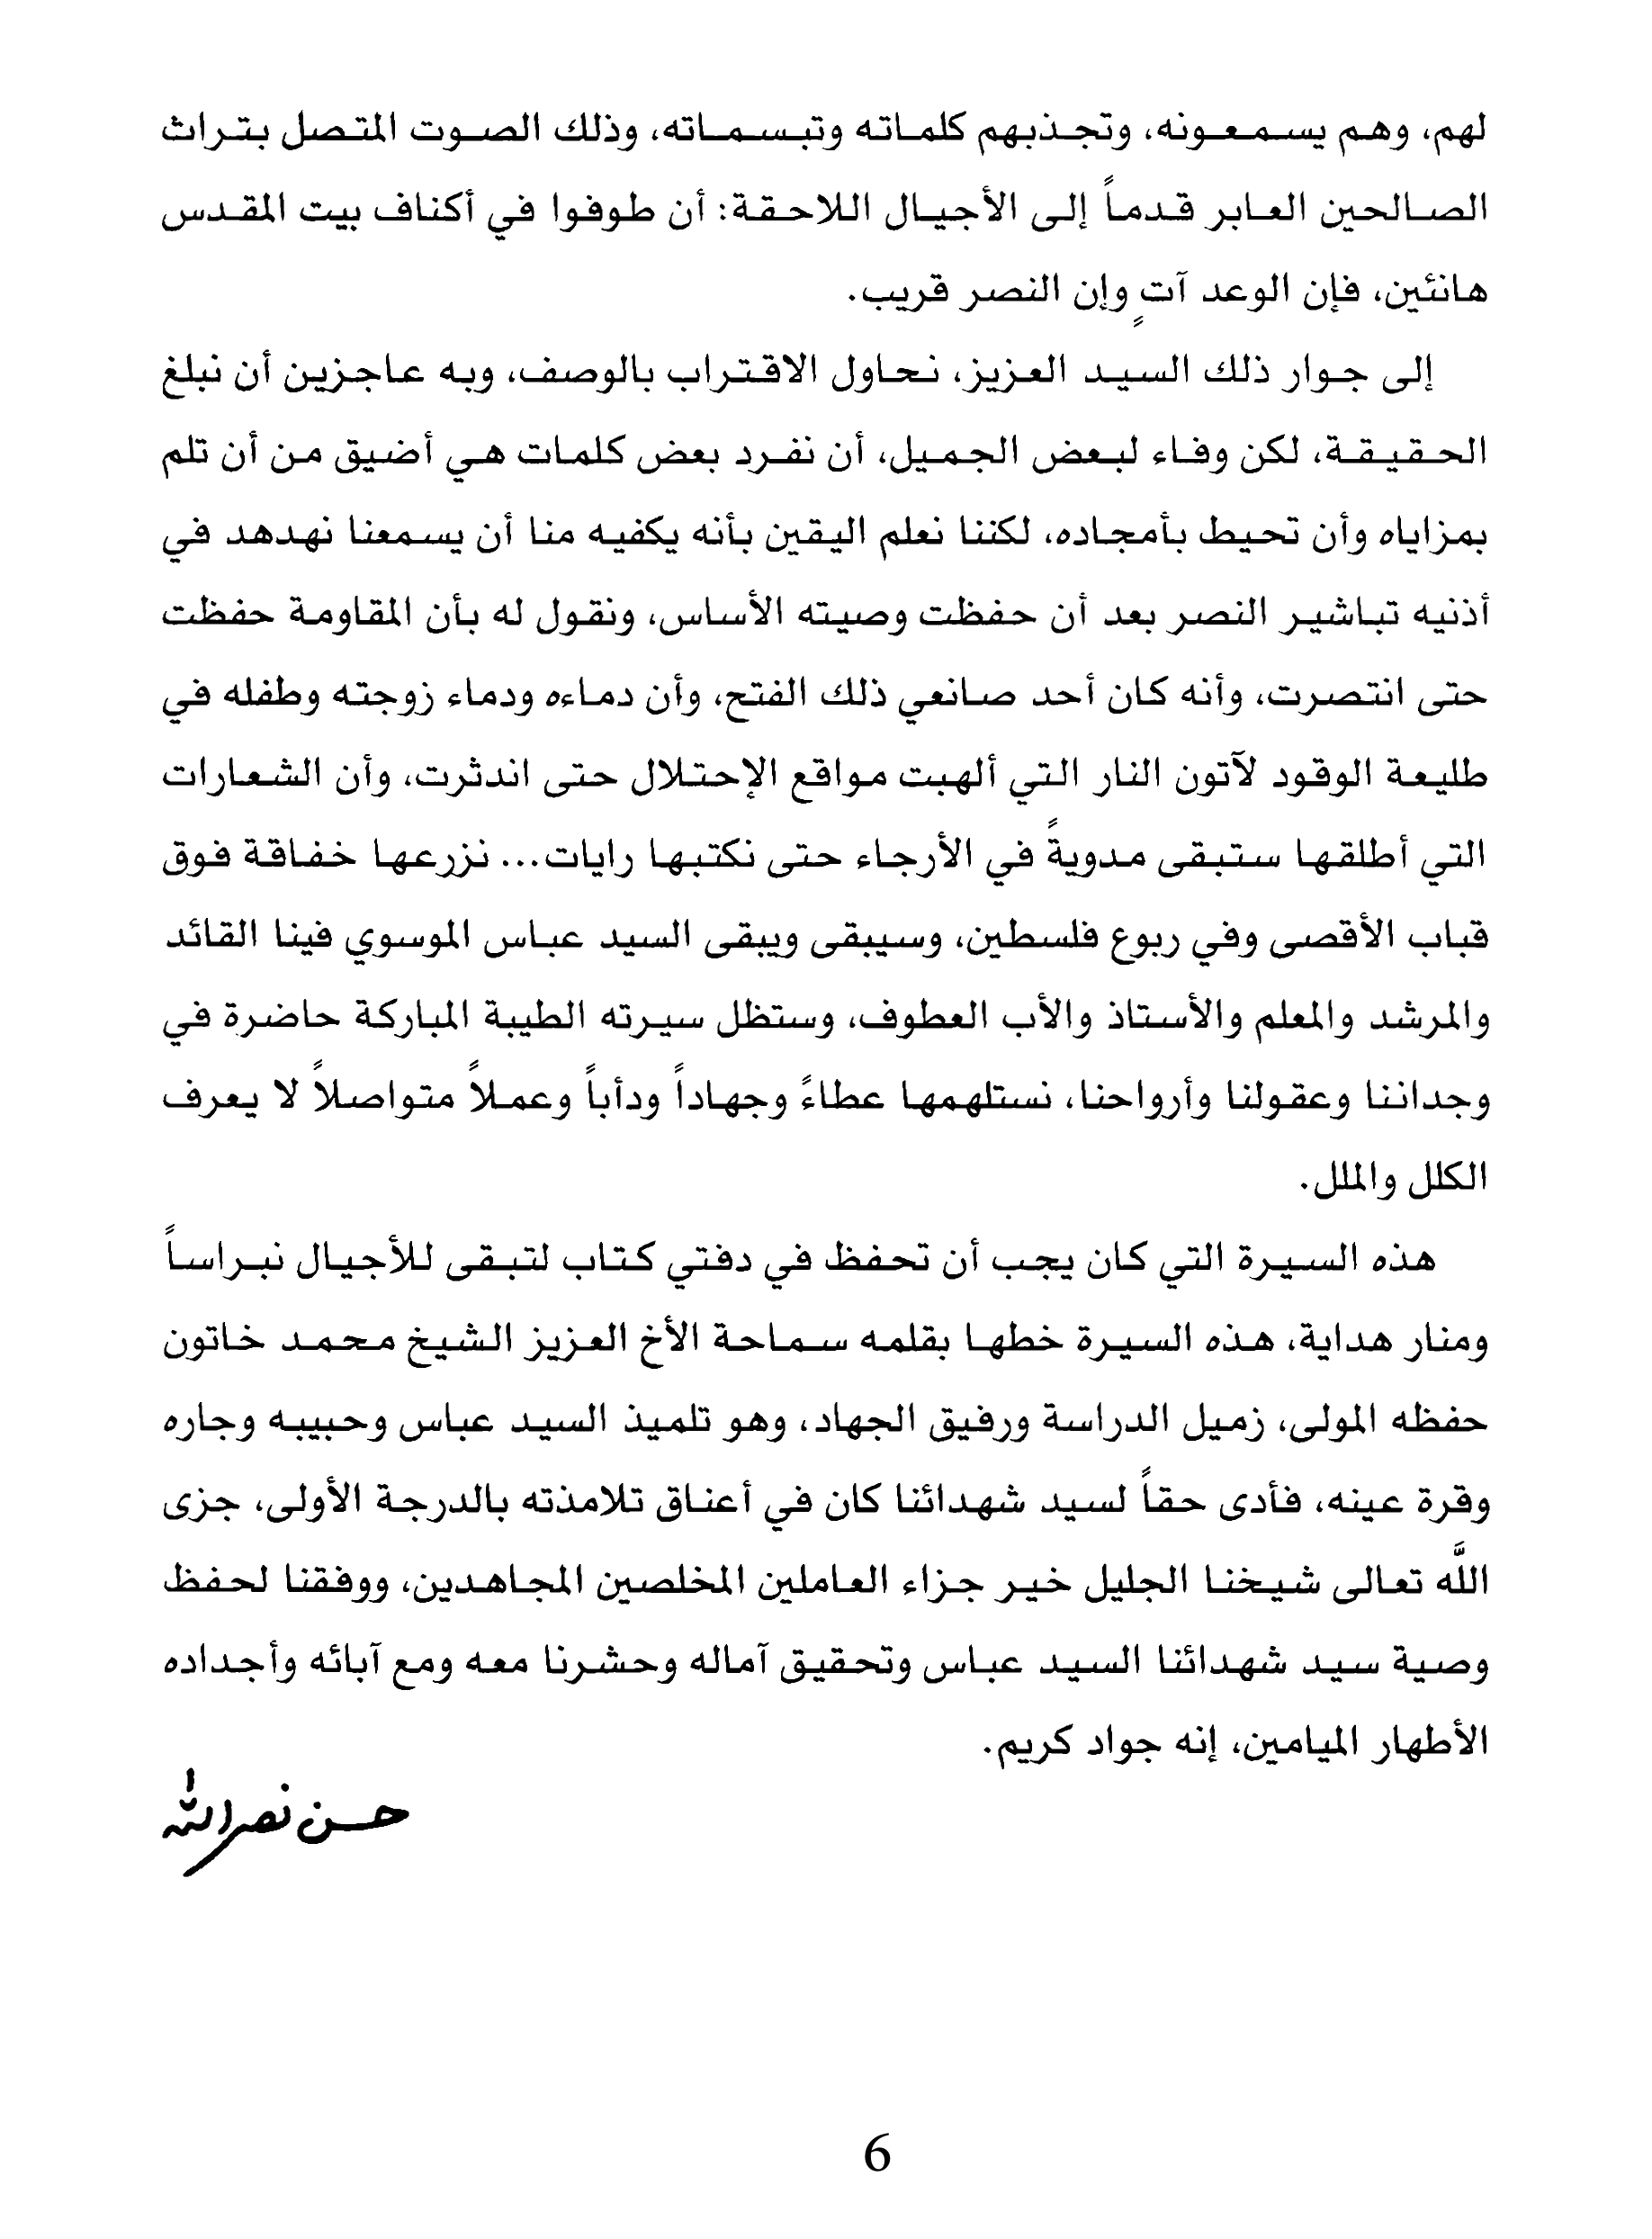 لهم، وهم يسمعونه، وتجذبهم كلماته وتبسماته، وذلك الصوت المتصل بتراث
الصالحين العابر قدماً إلى الأجيال اللاحقة: أن طوفوا في أكناف بيت المقدس
هانئين، فإن الوعد آتٍ وإن النصر قريب.
إلى جوار ذلك السيد العزيز، نحاول الاقتراب بالوصف، وبه عاجزين أن نبلغ
الحقيقة، لكن وفاء لبعض الجميل، أن نفرد بعض كلمات هي أضيق من أن تلم
بمزاياه وأن تحيط بأمجاده، لكننا نعلم اليقين بأنه يكفيه منا أن يسمعنا نهدهد في
أذنيه تباشير النصر بعد أن حفظت وصيته الأساس، ونقول له بأن المقاومة حفظت
حتى انتصرت، وأنه كان أحد صانعي ذلك الفتح، وأن دماءه ودماء زوجته وطفله في
طليعة الوقود لآتون النار التي ألهبت مواقع الإحتلال حتى اندثرت، وأن الشعارات
التي أطلقها ستبقى مدويةً في الأرجاء حتى نكتبها رايات... نزرعها خفاقة فوق
قباب الأقصى وفي ربوع فلسطين، وسيبقى ويبقى السيد عباس الموسوي فينا القائد
والمرشد والمعلم والأستاذ والأب العطوف، وستظل سيرته الطيبة المباركة حاضرة في
وجداننا وعقولنا وأرواحنا، نستلهمها عطاءً وجهاداً ودأباً وعملاً متواصلاً لا يعرف
الكلل والملل.
هذه السيرة التي كان يجب أن تحفظ في دفتي كتاب لتبقى للأجيال نبراساً
ومنار هداية، هذه السيرة خطها بقلمه سماحة الأخ العزيز الشيخ محمد خاتون
حفظه المولى، زميل الدراسة ورفيق الجهاد، وهو تلميذ السيد عباس وحبيبه وجاره
وقرة عينه، فأدى حقاً لسيد شهدائنا كان في أعناق تلامذته بالدرجة الأولى، جزى
اللَّه تعالى شيخنا الجليل خير جزاء العاملين المخلصين المجاهدين، ووفقنا لحفظ
وصية سيد شهدائنا السيد عباس وتحقيق آماله وحشرنا معه ومع آبائه وأجداده
الأطهار الميامين، إنه جواد كريم.
حسن نصر الله
6